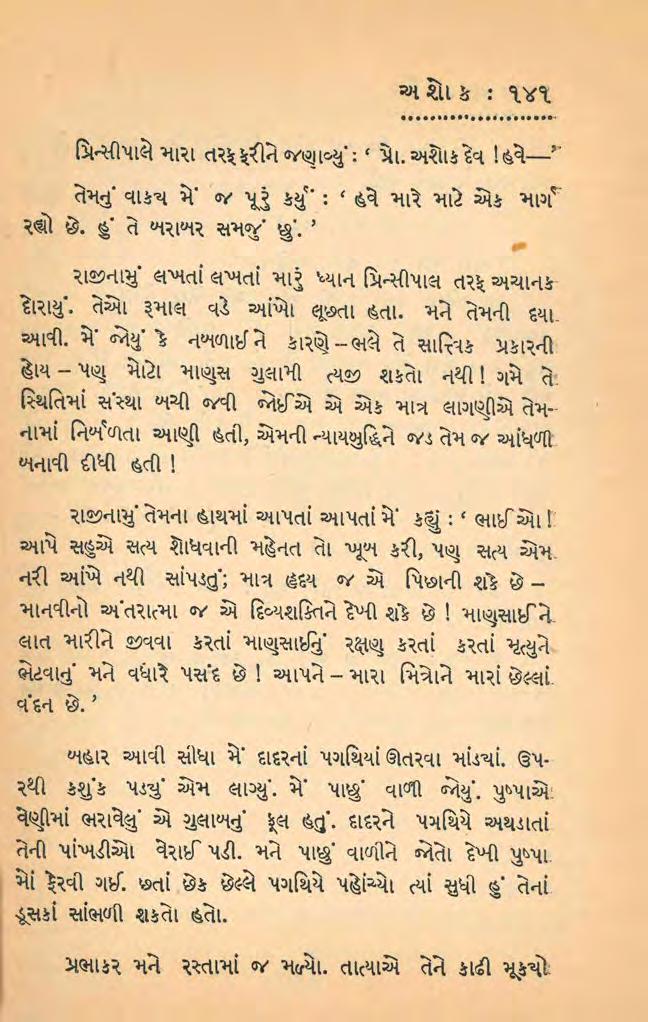 અ શો ક : ૧૪૧
પ્રિન્સીપાલે મારા તરફ ફરીને જણાવ્યું : ‘ પ્રો. અશોક દેવ ! હવે—’
તેમનું વાકય મેં જ પૂરું કર્યું : ‘ હવે મારે માટે એક માર્ગ
રહ્યો છે. હું તે બરાબર સમજું છું. ’
રાજીનામું લખતાં લખતાં મારું ધ્યાન પ્રિન્સીપાલ તરફ અચાનક
દોરાયું. તેઓ રૂમાલ વડે આંખો લૂછતા હતા. મને તેમની દયા
આવી. મેં જોયું કે નબળાઈ ને કારણે – ભલે તે સાત્ત્વિક પ્રકારની
હોય – પણ મોટો માણસ ગુલામી ત્યજી શકતો નથી ! ગમે તે
સ્થિતિમાં સંસ્થા બચી જવી જોઈએ એ એક માત્ર લાગણીએ તેમ-
નામાં નિર્બળતા આણી હતી, એમની ન્યાયબુદ્ધિને જડ તેમ જ આંધળી
બનાવી દીધી હતી !
રાજીનામું તેમના હાથમાં આપતાં આપતાં મેં કહ્યું : ‘ ભાઈ ઓ !
આપે સહુએ સત્ય શોધવાની મહેનત તો ખૂબ કરી, પણ સત્ય એમ
નરી આંખે નથી સાંપડતું; માત્ર હૃદય જ એ પિછાની શકે છે –
માનવીનો અંતરાત્મા જ એ દિવ્યશક્તિને દેખી શકે છે ! માણસાઈ ને
લાત મારીને જીવવા કરતાં માણસાઈનું રક્ષણ કરતાં કરતાં મૃત્યુને
ભેટવાનું મને વધારે પસંદ છે ! આપને – મારા મિત્રોને મારાં છેલ્લાં
વંદન છે. ’
બહાર આવી સીધા મેં દાદરનાં પગથિયાં ઊતરવા માંડ્યાં. ઉપ-
રથી કશુંક પડ્યું એમ લાગ્યું. મેં પાછું વાળી જોયું. પુષ્પાએ
વેણીમાં ભરાવેલું એ ગુલાબનું ફૂલ હતું. દાદરને પગથિયે અથડાતાં
તેની પાંખડીઓ વેરાઈ પડી. મને પાછું વાળીને જોતો દેખી પુષ્પા
મોં ફેરવી ગઈ. છતાં છેક છેલ્લે પગથિયે પહોંચ્યો ત્યાં સુધી હું તેનાં
ડૂસકાં સાંભળી શકતો હતો.
પ્રભાકર મને રસ્તામાં જ મળ્યો. તાત્યાએ તેને કાઢી મૂકયો